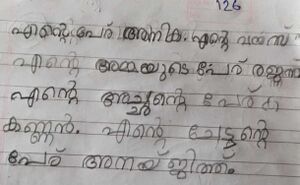 126
എന്റെ പേര് അനിക. എന്റെ വയസ്സ്
എന്റെ അമ്മയുടെ പേര് രജനി
എന്റെ അച്ഛന്റെ പേര്
കണ്ണൻ. എന്റെ ചേട്ടന്റെ
പേര് അനയ്ജിത്ത്.